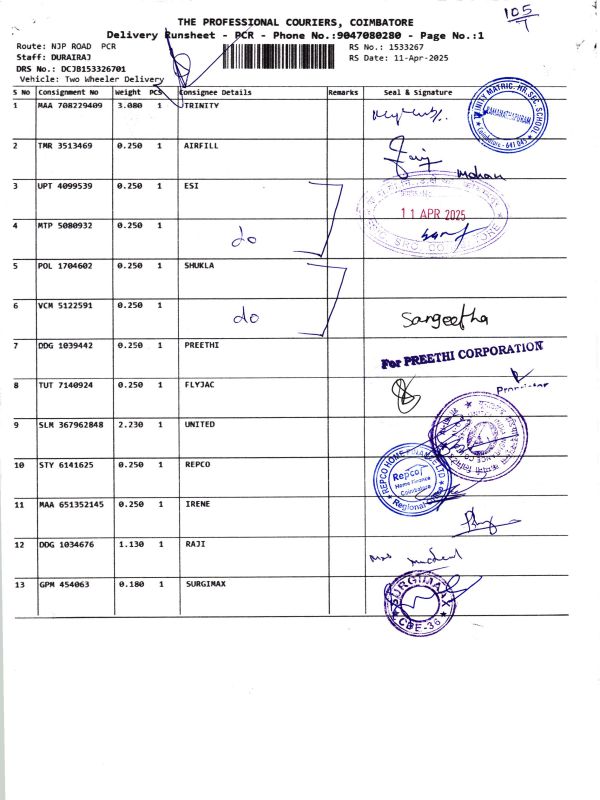 105/T
THE PROFESSIONAL COURIERS, COIMBATORE
Delivery Runsheet - PCR - Phone No.:9047080280 - Page No.:1
Route: NJP ROAD PCR RS No.: 1533267
Staff: DURAIRAJ RS Date: 11-Apr-2025
DRS No.: DCJB153326701
Vehicle: Two Wheeler Delivery
S No Consignment No Weight PCS Consignee Details Remarks Seal & Signature
1 MAA 708229409 3.080 1 TRINITY
TRINITY MATRIC. HR. SEC. SCHOOL
RAMANATHAPURAM
Coimbatore - 641 045
2 TMR 3513469 0.250 1 AIRFILL
mohan
3 UPT 4099539 0.250 1 ESI
11 APR 2025
4 MTP 5080932 0.250 1 do
5 POL 1704602 0.250 1 SHUKLA
6 VCM 5122591 0.250 1 do Sangeetha
7 DDG 1039442 0.250 1 PREETHI For PREETHI CORPORATION
Proprietor
8 TUT 7140924 0.250 1 FLYJAC
9 SLM 367962848 2.230 1 UNITED
10 STY 6141625 0.250 1 REPCO
REPCO HOME FINANCE LTD
Repco
Home Finance
Coimbatore
Regional Office
11 MAA 651352145 0.250 1 IRENE
12 DDG 1034676 1.130 1 RAJI
13 GPM 454063 0.180 1 SURGIMAX
SURGIMAX
CBE-36